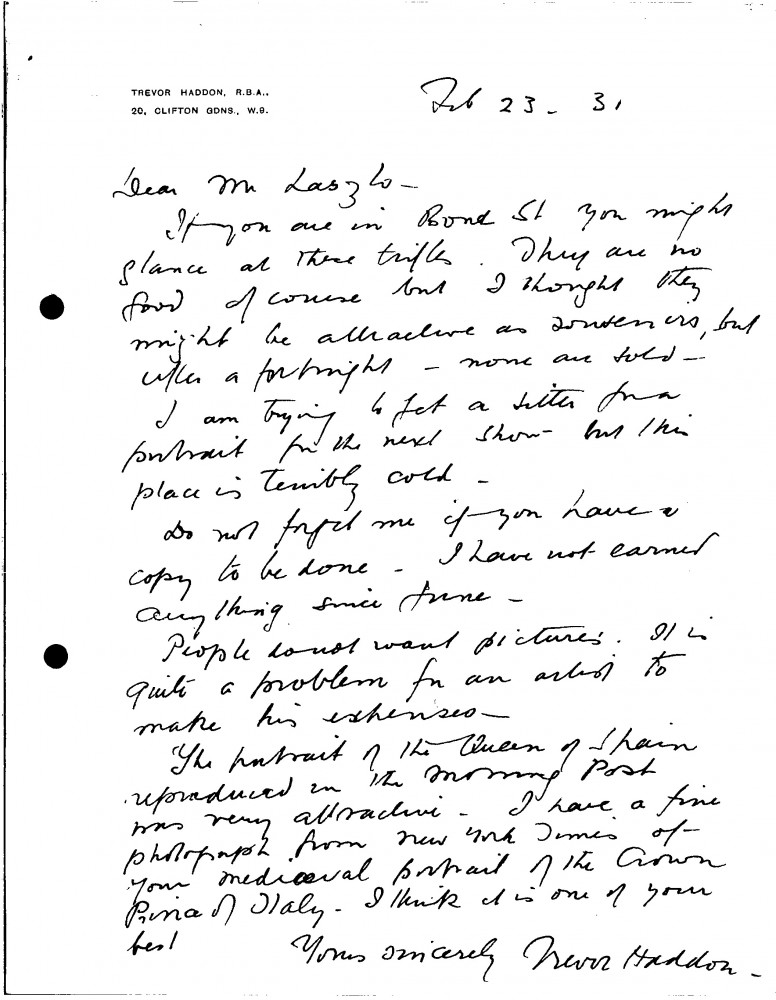 TREVOR HADDON, R.B.A.,
20, CLIFTON GDNS., W.9.
Feb 23 - 31
Dear Mr Laszlo —
If you are in Bond St you might
glance at these trifles. They are no
good of course but I thought they
might be attractive as souvenirs, but
after a fortnight – none are sold –
I am trying to get a sitter for a
portrait for the next show – but this
place is terribly cold –
Do not forget me if you have a
copy to be done – I have not earned
anything since June –
People do not want pictures. It is
quite a problem for an artist to
make his expenses –
The portrait of the Queen of Spain
reproduced in the Morning Post
was very attractive – I have a fine
photograph from New York Times of
your mediæval portrait of the Crown
Prince of Italy – I think it is one of your
best
Yours sincerely Trevor Haddon –